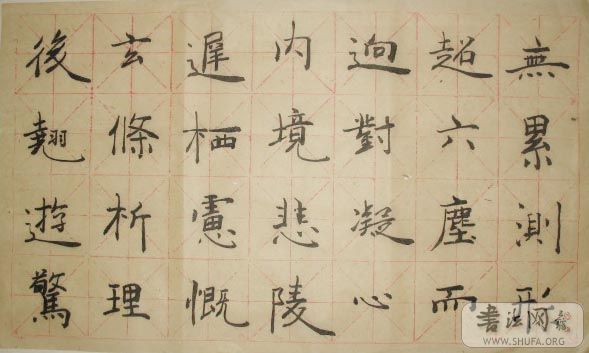 無累測形
超六塵而
迥對凝心
内境悲陵
遲栖慮慨
玄條析理
後翹遊驚
書法网
WWW.SHUFA.ORG